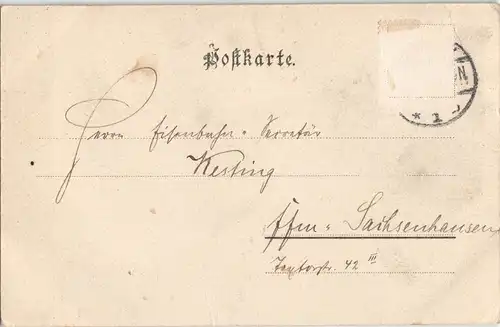 Postkarte.
N
* 1
Herrn Eisenbahn-Secretär
Kesting
Ffm-Sachsenhausen
42 III